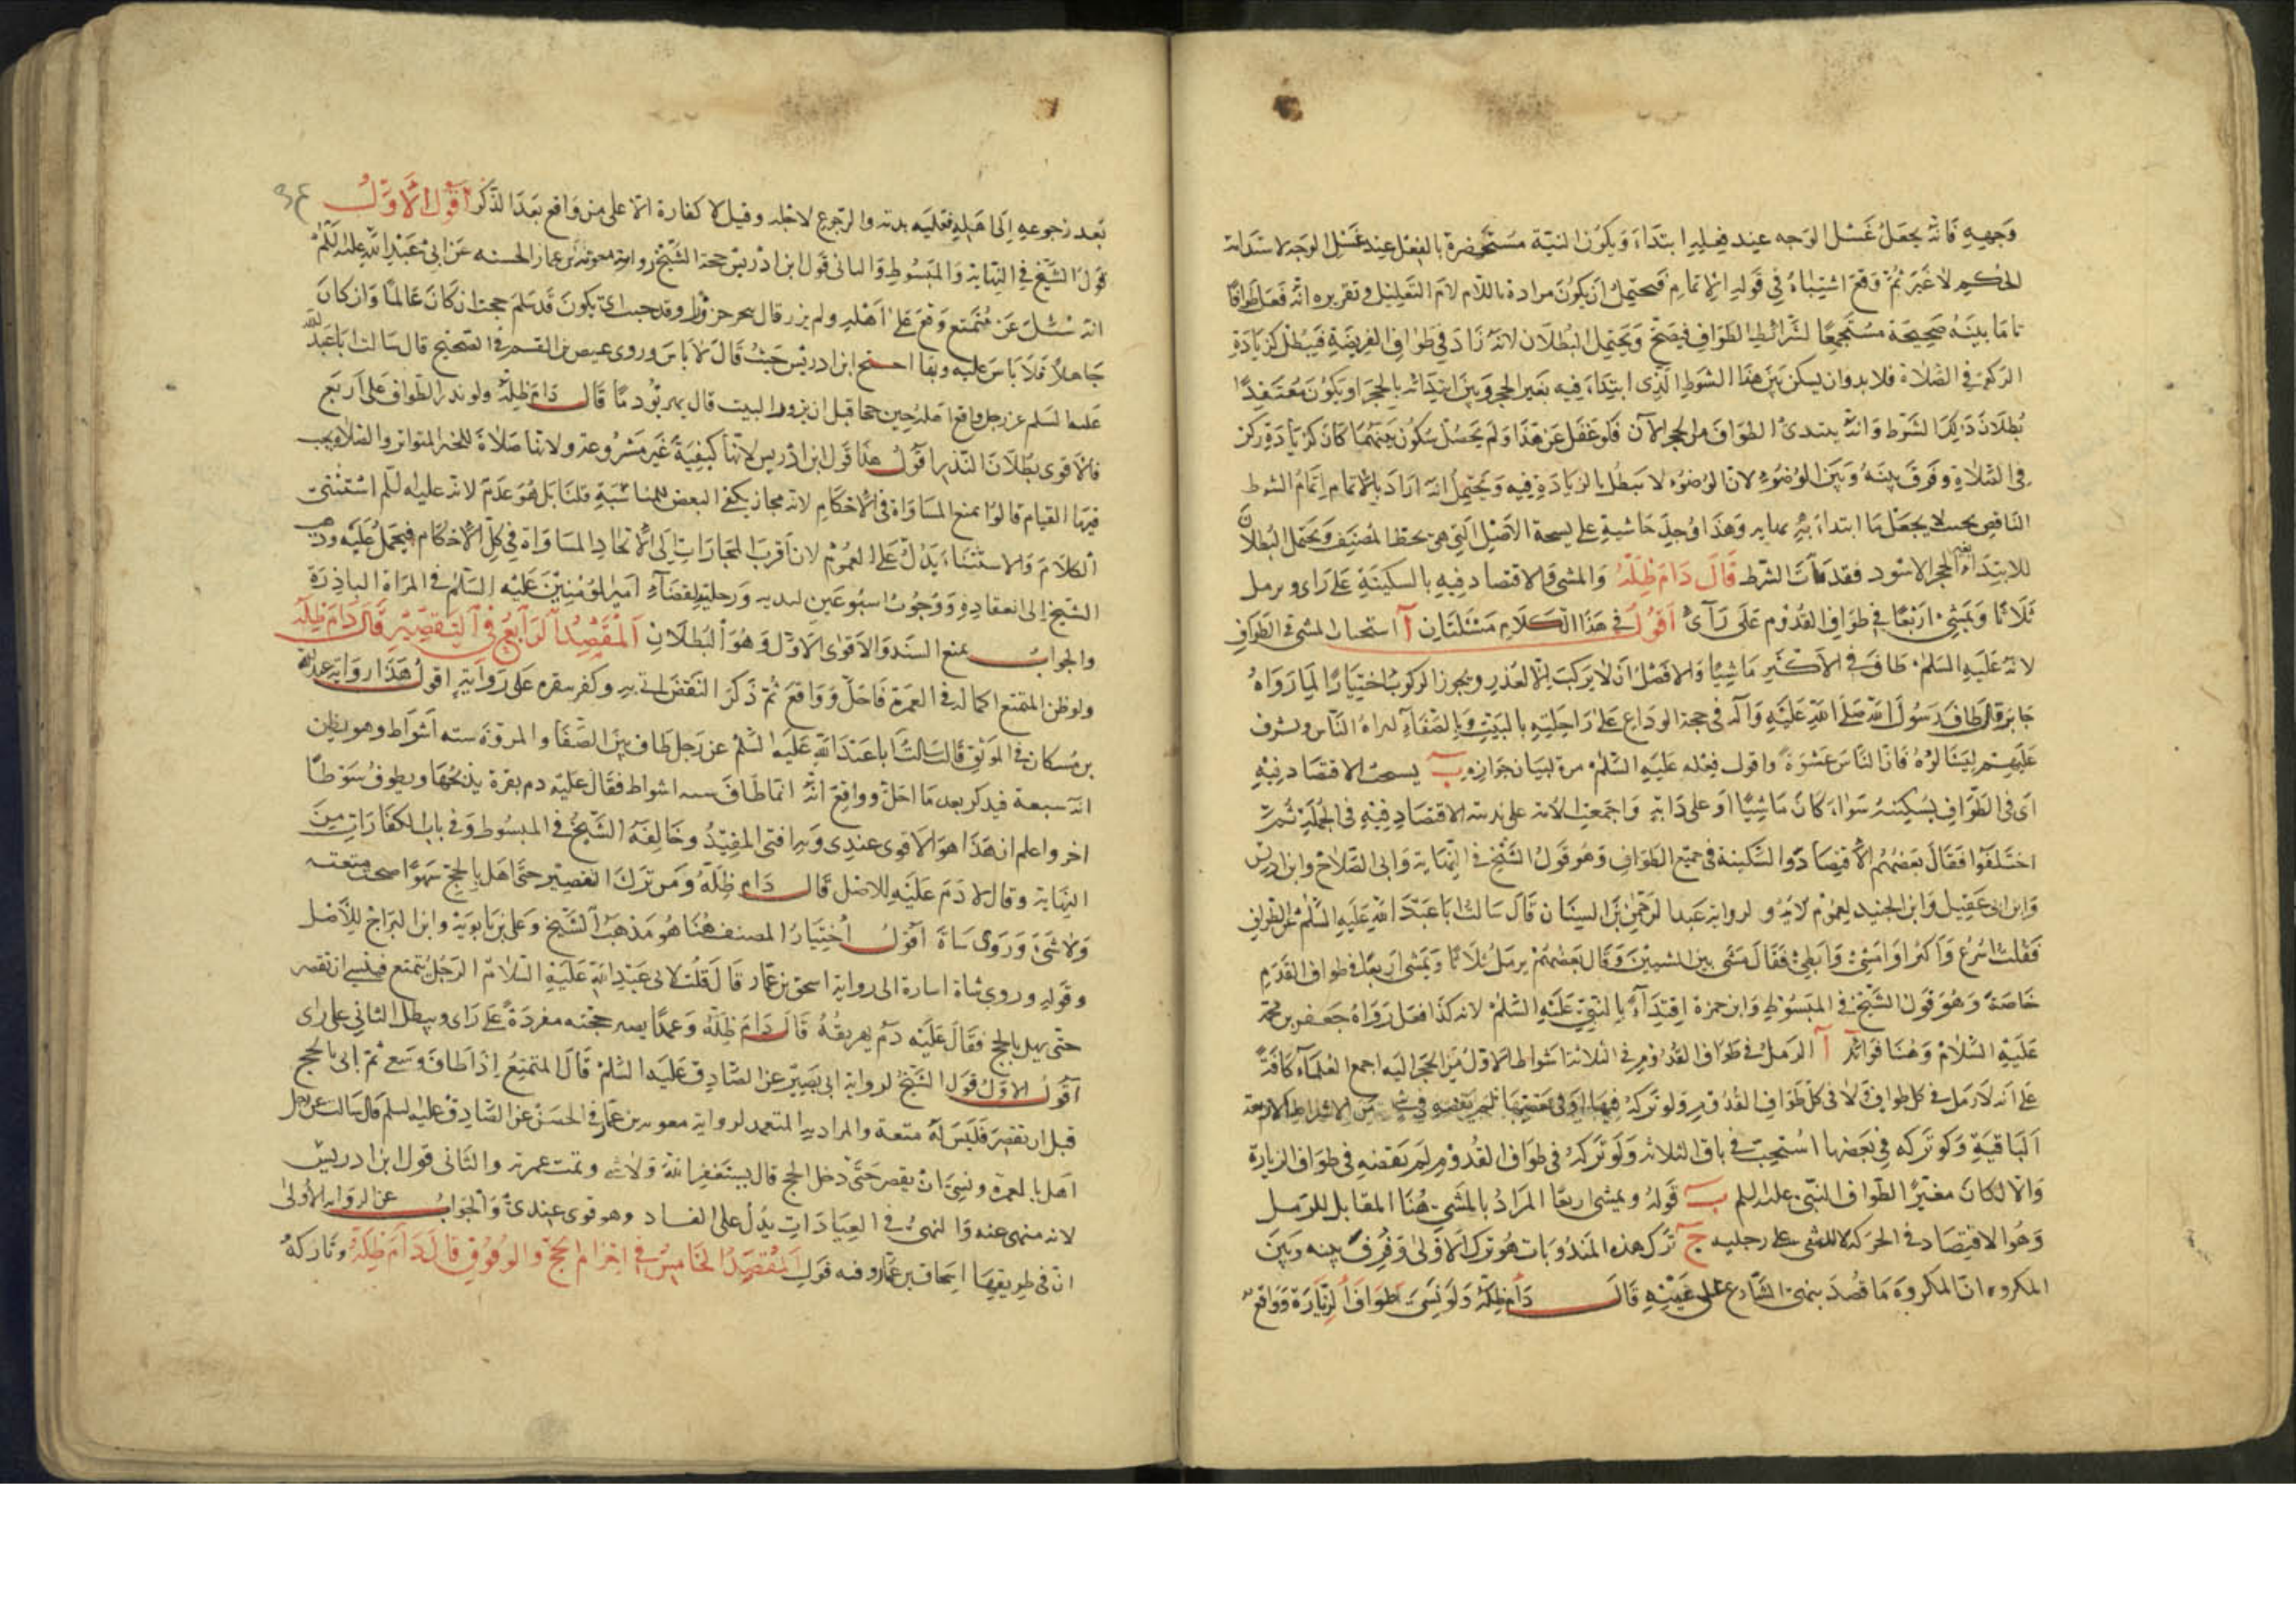 وجهه فانه يجعل غسل الوجه عند فعله ابتداء ويكون النية مستحضرة بالفعل عند غسل الوجه لاستدامة
الحكم لا غير ثم وقع اشتباه في قوله الاتمام فيحتمل ان يكون مراده باللام لام التعليل وتقريره انه فعل طوافا
تاما بينة صحيحة مستجمعا لشرائط الطواف فيصح ويحتمل البطلان لانه زاد في طواف الفريضة فيبطل كزيادة
الركعة في الصلاة فلا بد وان يسكن بين هذا الشوط الذي ابتداء فيه بغير الحجر وبين ابتدائه بالحجر او يكون معتقدا
بطلان ذلك الشوط وانه يبتدئ الطواف من الحجر الان فلو غفل عن هذا ولم يحصل سكون بينهما كان كزيادة ركن
في الصلاة وفرق بينه وبين الوضوء لان الوضوء لا يبطل بالزيادة فيه ويحتمل انه اراد بالاتمام اتمام الشوط
الناقص بحيث لا يجعل ما ابتداء به وهذا وجد حاشية على نسخة الاصل التي هي بخط المصنف ويحتمل البطلان
للابتداء بغير الحجر الاسود فقد فات الشرط قال دام ظله والمشي والاقتصاد فيه بالسكينة على راى ويرمل
ثلاثا ويمشي اربعا في طواف القدوم على راى اقول في هذا الكلام مسئلتان آ استحباب المشي في الطواف
لانه عليه السلم طاف في الاكثر ماشيا والافضل ان لا يركب الا لعذر ويجوز الركوب اختيارا لما رواه
جابر قال طاف رسول الله صلى الله عليه وآله في حجة الوداع على راحلته بالبيت وبالصفاء ليراه الناس وليشرف
عليهم ليسالوه فان الناس عشوة واقول فعله عليه السلم مرة لبيان جوازه ب يستحب الاقتصاد فيه
اى في الطواف بسكينة سواء كان ماشيا او على دابة واجمعت الامة على ندبية الاقتصاد فيه في الجملة ثم
اختلفوا فقال بعضهم الاقتصاد والسكينة في جميع الطواف وهو قول الشيخ في النهاية وابى الصلاح وابن ادريس
وابن ابى عقيل وابن الجنيد لعموم ولرواية عبد الرحمن بن السيان قال سالت ابا عبد الله عليه السلم عن الطواف
فقلت اسرع واكثر او امشي وابطي فقال مشي بين المشيين وقال بعضهم يرمل ثلاثا ويمشي اربعا في طواف القدوم
خاصة وهو قول الشيخ في المبسوط وابن حمزة اقتداء بالنبي عليه السلم لانه كذا فعل رواه جعفر بن محمد
عليه السلام وهنا فوائد آ الرمل في طواف القدوم في الثلاثة اشواط الاول من الحجر اليه اجمع العلماء كافة
على انه لا رمل في كل طواف ولا في كل طواف القدوم ولو تركه فيها او في بعضها لم يقضه في من الاشواط الاربعة
الباقية ولو تركه في بعضها استحب في باقي الثلاثة ولو تركه في طواف القدوم لم يقضه في طواف الزيارة
والا لكان مغيرا لطواف النبي عليه السلم ب قوله ويمشي اربعا المراد بالمشي هنا المقابل للرمل
وهو الاقتصاد في الحركة لا المشي على رجليه ج ترك هذه المندوبات هو ترك الاولى وفرق بينه وبين
المكروه ان المكروه ما قصد بنهي الشارع على عينه قال دام ظله ولو نسي طواف الزيارة وواقع
بعد رجوعه الى اهله فعليه بدنة والرجوع لاجله وقيل لا كفارة الا على من واقع بعد الذكر اقول الاول
قول الشيخ في النهاية والمبسوط والثاني قول ابن ادريس حجة الشيخ رواية معوية بن عمار الحسنة عن ابى عبد الله عليه السلم
انه سئل عن متمتع وقع على اهله ولم يزر قال ينحر جزورا وقد خشيت ان يكون قد ثلم حجه ان كان عالما وان كان
جاهلا فلا باس عليه وبهذا احتج ابن ادريس حيث قال لا باس وروى عيص بن القسم في الصحيح قال سالت ابا عبد الله
عليه السلم عن رجل واقع اهله حين ضحا قبل ان يزور البيت قال يهريق دما قال دام ظله ولو نذر الطواف على اربع
فالاقوى بطلان النذر اقول هذا قول ابن ادريس لانها كيفية غير مشروعة ولانها صلاة للخبر المتواتر والصلاة يجب
فيها القيام قالوا بمنع المساواة في الاحكام لانه مجاز يكفي البعض للمناسبة قلنا بل هو عدم لانه عليه السلم استثنى
الكلام والاستثناء يدل على العموم لان اقرب المجازات الى الاتحاد المساواة في كل الاحكام فيحمل عليه وذهب
الشيخ الى انعقاده ووجوب اسبوعين ليديه ورجليه لقضاء امير المؤمنين عليه السلم في المراة الناذرة
والجواب بمنع السند والاقوى الاول وهو البطلان المقصد الرابع في التقصير قال دام ظله
ولو ظن المتمتع اكماله في العمرة فاحل وواقع ثم ذكر النقص اتى به وكفر ببقرة على رواية اقول هذا رواية عبد الله
بن مسكان في الموثق قال سالت ابا عبد الله عليه السلم عن رجل طاف بين الصفا والمروة ستة اشواط وهو يظن
انه سبعة فيذكر بعد ما احل وواقع انه انما طاف ستة اشواط فقال عليه دم بقرة يذبحها ويطوف شوطا
اخر واعلم ان هذا هو الاقوى عندى وبه افتى المفيد وخالفه الشيخ في المبسوط وفي باب الكفارات من
النهاية وقال لا دم عليه للاصل قال دام ظله ومن ترك التقصير حتى اهل بالحج سهوا صحت متعته
ولا شئ وروى شاة اقول اختيار المصنف هنا هو مذهب الشيخ وعلى بن بابويه وابن البراج للاصل
وقوله وروى شاة اشارة الى رواية اسحق بن عمار قال قلت لابى عبد الله عليه السلام الرجل يتمتع فينسى ان يقصر
حتى يهل بالحج فقال عليه دم يهريقه قال دام ظله وعمدا يصير حجته مفردة على راى ويبطل الثاني على راى
اقول الاول قول الشيخ لرواية ابى بصير عن الصادق عليه السلم قال المتمتع اذا طاف وسعى ثم لبى بالحج
قبل ان يقصر فليس له متعة والمراد به المتعمد لرواية معوية بن عمار في الحسن عن الصادق عليه السلم قال سالت عن رجل
اهل بالعمرة ونسى ان يقصر حتى دخل الحج قال يستغفر الله ولا شئ وتمت عمرته والثاني قول ابن ادريس
لانه منهى عنه والنهى في العبادات يدل على الفساد وهو قوى عندى والجواب عن الرواية الاولى
ان في طريقها اسحاق بن عمار وفيه قول المقصد الخامس في احرام الحج والوقوف قال دام ظله وتاركه